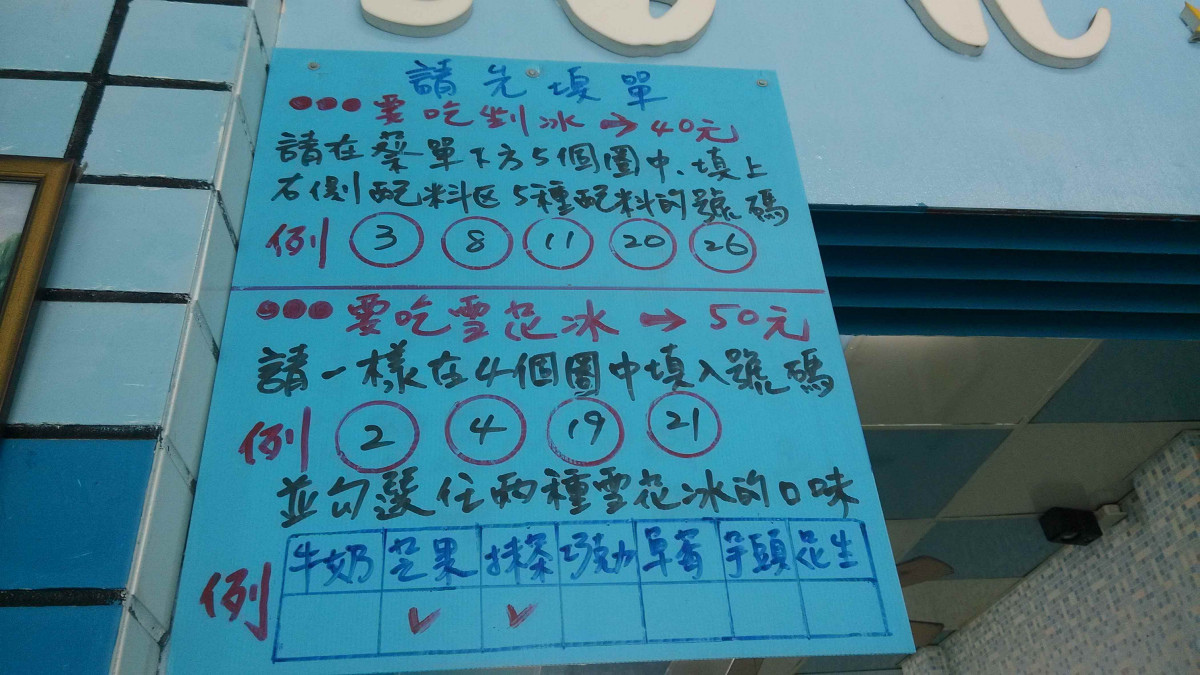 請先填單
●●●要吃剉冰→40元
請在菜單下方5個圈中、填上
右側配料区5種配料的號碼
例 3 8 11 20 26
●●●要吃雪花冰→50元
請一樣在4個圈中填入號碼
例 2 4 19 21
並勾選任兩種雪花冰的口味
牛奶 芒果 抹茶 巧克力 草莓 芋頭 花生
例 ✓ ✓